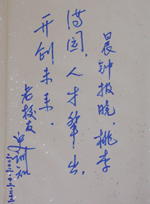 晨钟报晓,桃李
满园,人才辈出,
开创未来。
老校友